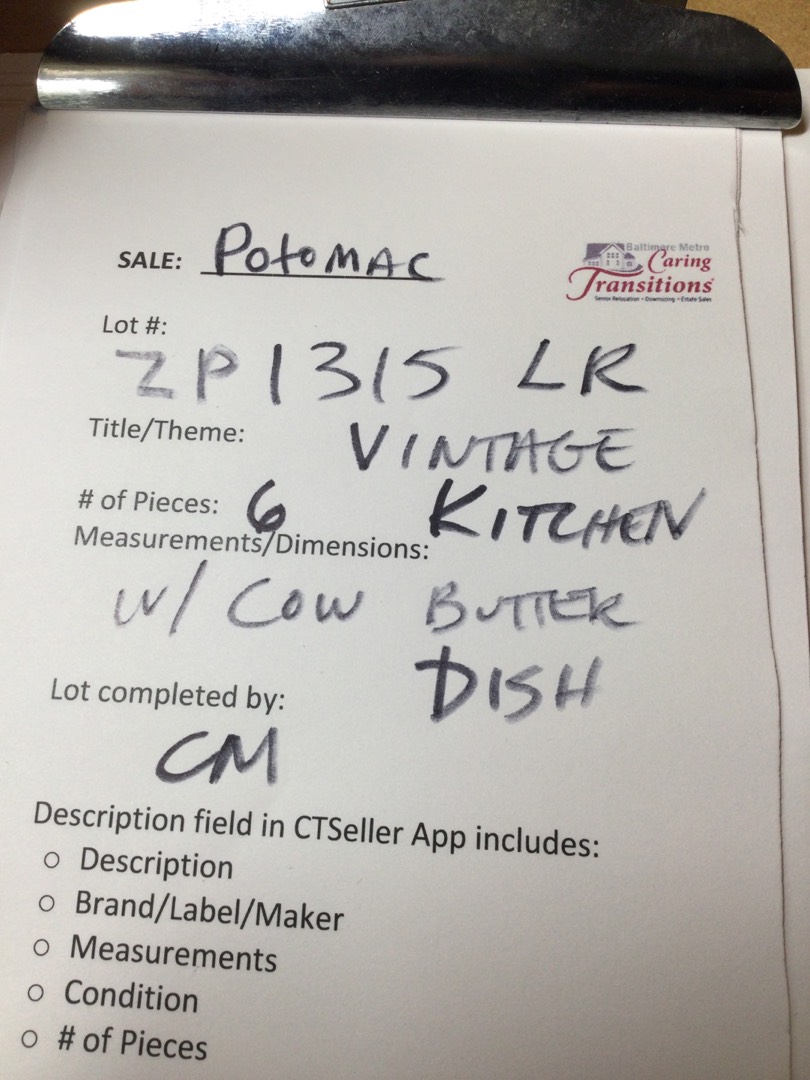 SALE: Potomac
Baltimore Metro
Caring
Transitions
Senior Relocation • Downsizing • Estate Sales
Lot #:
ZP1315 LR
Title/Theme: VINTAGE
# of Pieces: 6 KITCHEN
Measurements/Dimensions:
W/ COW BUTTER
DISH
Lot completed by:
CM
Description field in CTSeller App includes:
○ Description
○ Brand/Label/Maker
○ Measurements
○ Condition
○ # of Pieces